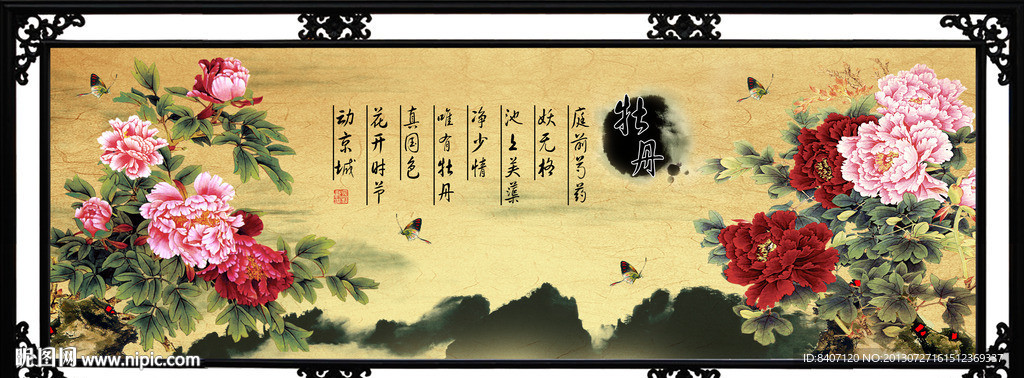 牡丹
庭前芍药
妖无格
池上芙蕖
净少情
唯有牡丹
真国色
花开时节
动京城
昵图网 www.nipic.com
ID:8407120 NO:20130727161512369337